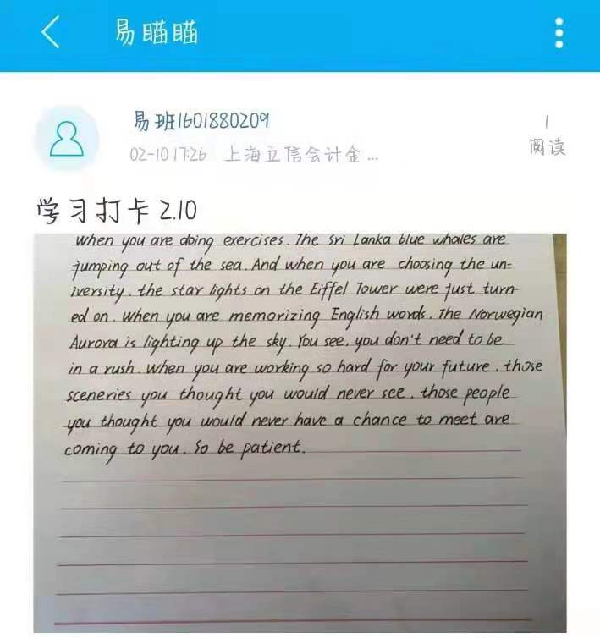 易瞄瞄
易班1601880209
1
02-10 17:26 上海立信会计金...
阅读
学习打卡 2.10
when you are doing exercises. The Sri Lanka blue whales are
jumping out of the sea. And when you are choosing the un-
iversity. the star lights on the Eiffel Tower were just turn-
ed on. When you are memorizing English words. The Norwegian
Aurora is lighting up the sky. You see. you don't need to be
in a rush. When you are working so hard for your future. those
sceneries you thought you would never see. those people
you thought you would never have a chance to meet are
coming to you. So be patient.